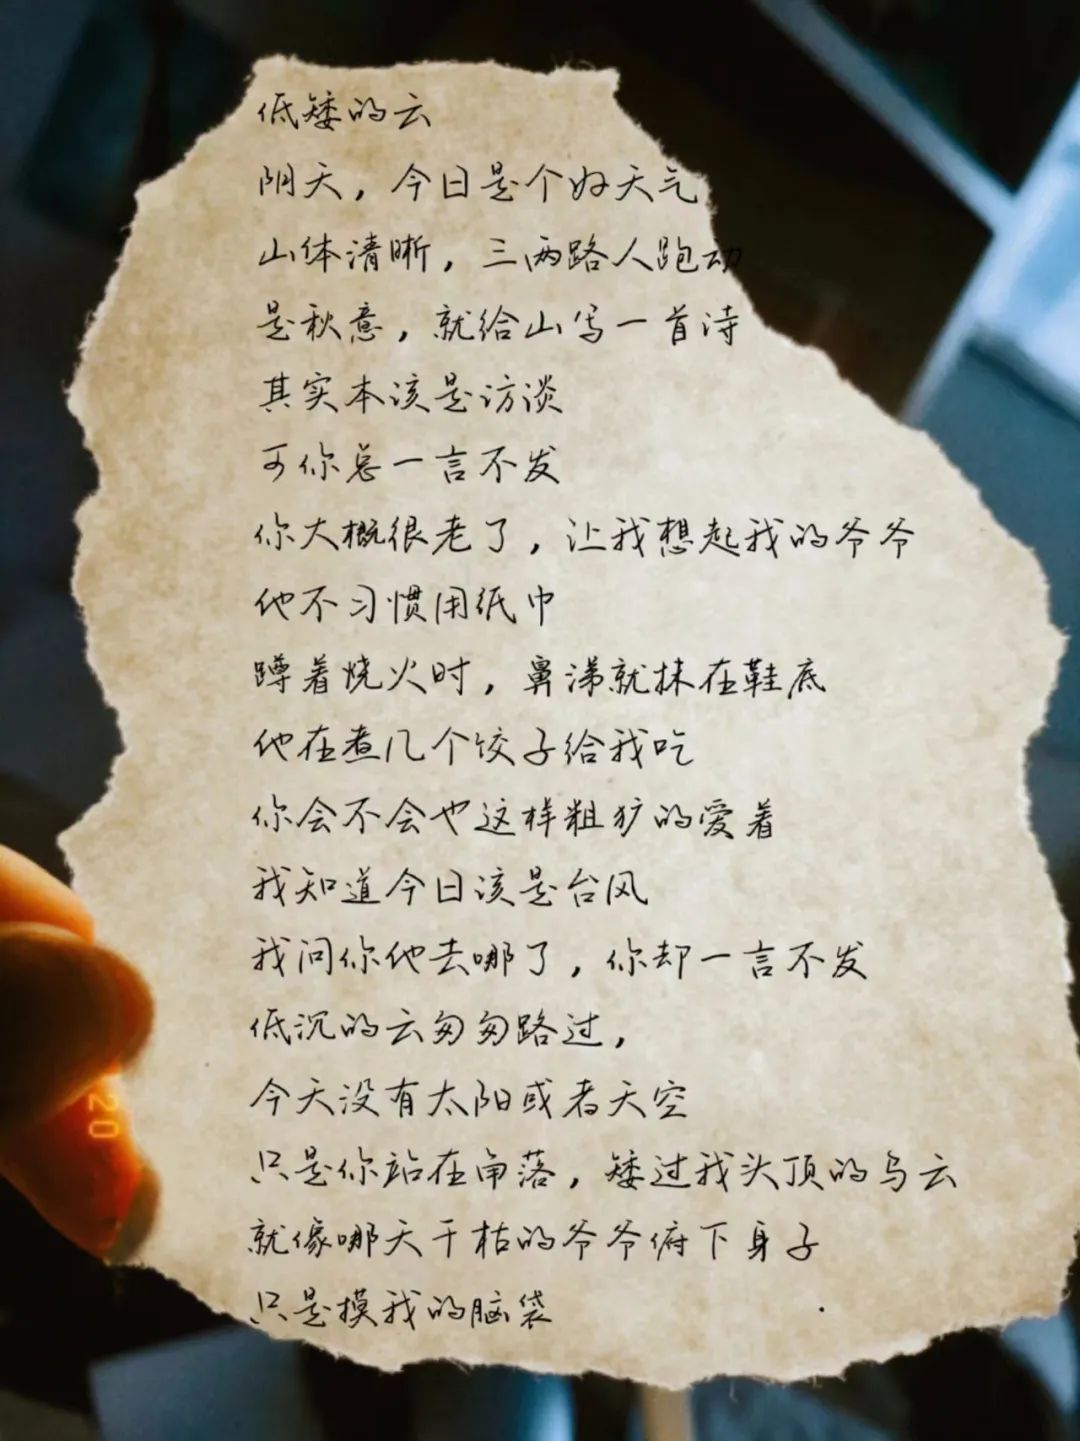 低矮的云
阴天，今日是个好天气
山体清晰，三两路人跑动
是秋意，就给山写一首诗
其实本该是访谈
可你总一言不发
你大概很老了，让我想起我的爷爷
他不习惯用纸巾
蹲着烧火时，鼻涕就抹在鞋底
他在煮几个饺子给我吃
你会不会也这样粗犷的爱着
我知道今日该是台风
我问你他去哪了，你却一言不发
低沉的云匆匆路过，
今天没有太阳或者天空
只是你站在角落，矮过我头顶的乌云
就像哪天干枯的爷爷俯下身子
只是摸我的脑袋
20